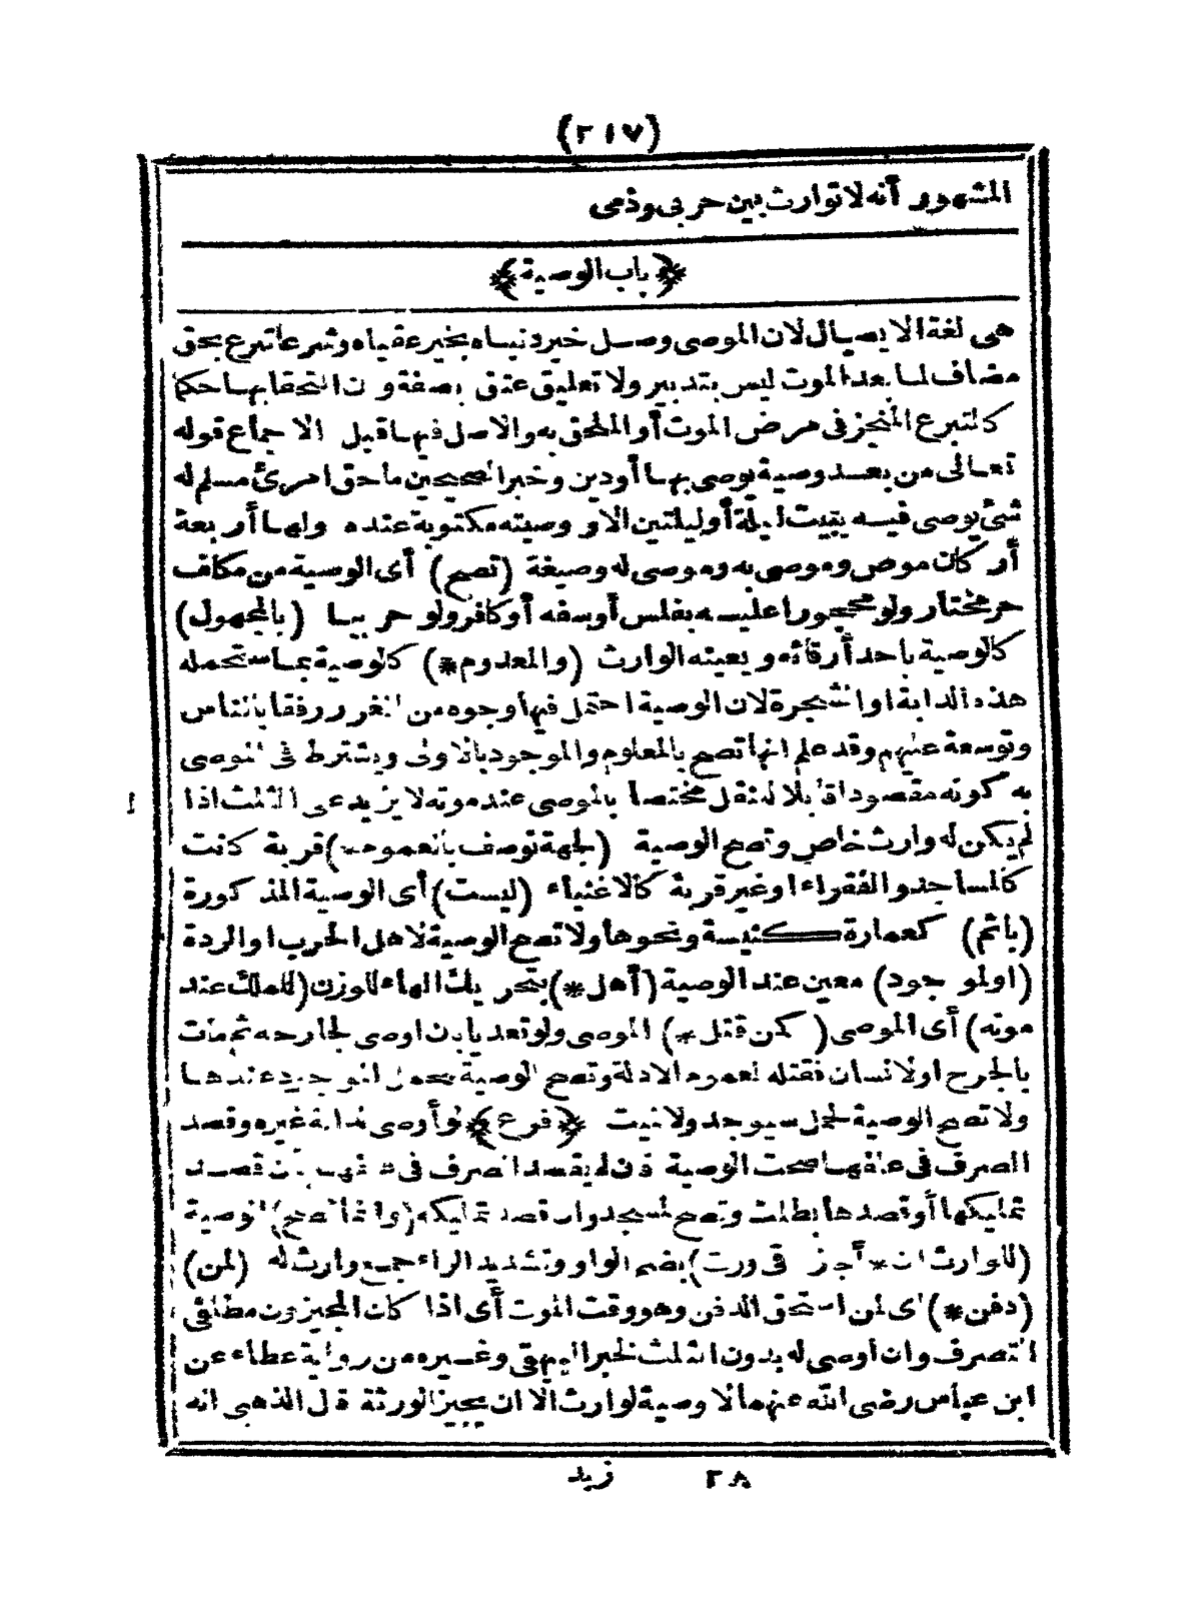 (٢١٧)
المشهور أنه لا توارث بين حربى وذمى
﴿باب الوصية﴾
هى لغة الايصال لان الموصى وصل خير دنياه بخير عقباه وشرعا تبرع بحق
مضاف لما بعد الموت ليس بتدبير ولا تعليق عتق بصفة و ن التحقا بها حكما
كالتبرع المنجز فى مرض الموت أو الملحق به والاصل فيها قبل الاجماع قوله
تعالى من بعد وصية يوصى بها أو دين وخبر الصحيحين ما حق امرئ مسلم له
شئ يوصى فيه يبيت ليلة أو ليلتين الا ووصيته مكتوبة عنده ولها أربعة
أركان موص وموصى به وموصى له وصيغة (تصح) أى الوصية من مكلف
حر مختار ولو محجورا عليه بفلس أو سفه أو كافر ولو حربيا (بالمجهول)
كالوصية باحد أرقائه ويعينه الوارث (والمعدوم*) كالوصية بما ستحمله
هذه الدابة او الشجرة لان الوصية احتمل فيها وجوه من الغرر رفقا بالناس
وتوسعة عليهم وقد علم انها تصح بالمعلوم والموجود بالاولى ويشترط فى الموصى
به كونه مقصودا قابلا للنقل مختصا بالموصى عند موته لا يزيد على الثلث اذا
لم يكن له وارث خاص وتصح الوصية (لجهة توصف بالعموم*) قربة كانت
كالمساجد والفقراء او غير قربة كالاغنياء (ليست) أى الوصية المذكورة
(باثم) كعمارة كنيسة ونحوها ولا تصح الوصية لاهل الحرب او الردة
(او لموجود) معين عند الوصية (أهل*) بتحريك الهاء للوزن (للملك عند
موته) أى الموصى (كمن قتل*) الموصى ولو تعديا بان اوصى لجارحه ثم مات
بالجرح او لانسان فقتله لعموم الادلة وتصح الوصية لحمل الموجود عندها
ولا تصح الوصية لحمل سيوجد ولا لميت ﴿فرع﴾ لو أوصى لدابة غيره وقصد
الصرف فى علفها صحت الوصية فان لم يقصد الصرف فى علفها بان قصد
تمليكها أو قصدها بطلت وتصح لمسجد وان قصد تمليكه (وانما تصح) الوصية
(للوارث ان* أجاز قى ورت) بضم الواو وتشديد الراء جمع وارث له (لمن)
(دفن*) اى لمن استحق الدفن وهو وقت الموت أى اذا كان المجيزون مطلقى
التصرف وان أوصى له بدون الثلث لخبر البيهقى وغيره من رواية عطاء عن
ابن عباس رضى الله عنهما لا وصية لوارث الا ان يجيز الورثة قال الذهبى انه
٢٨ زبد